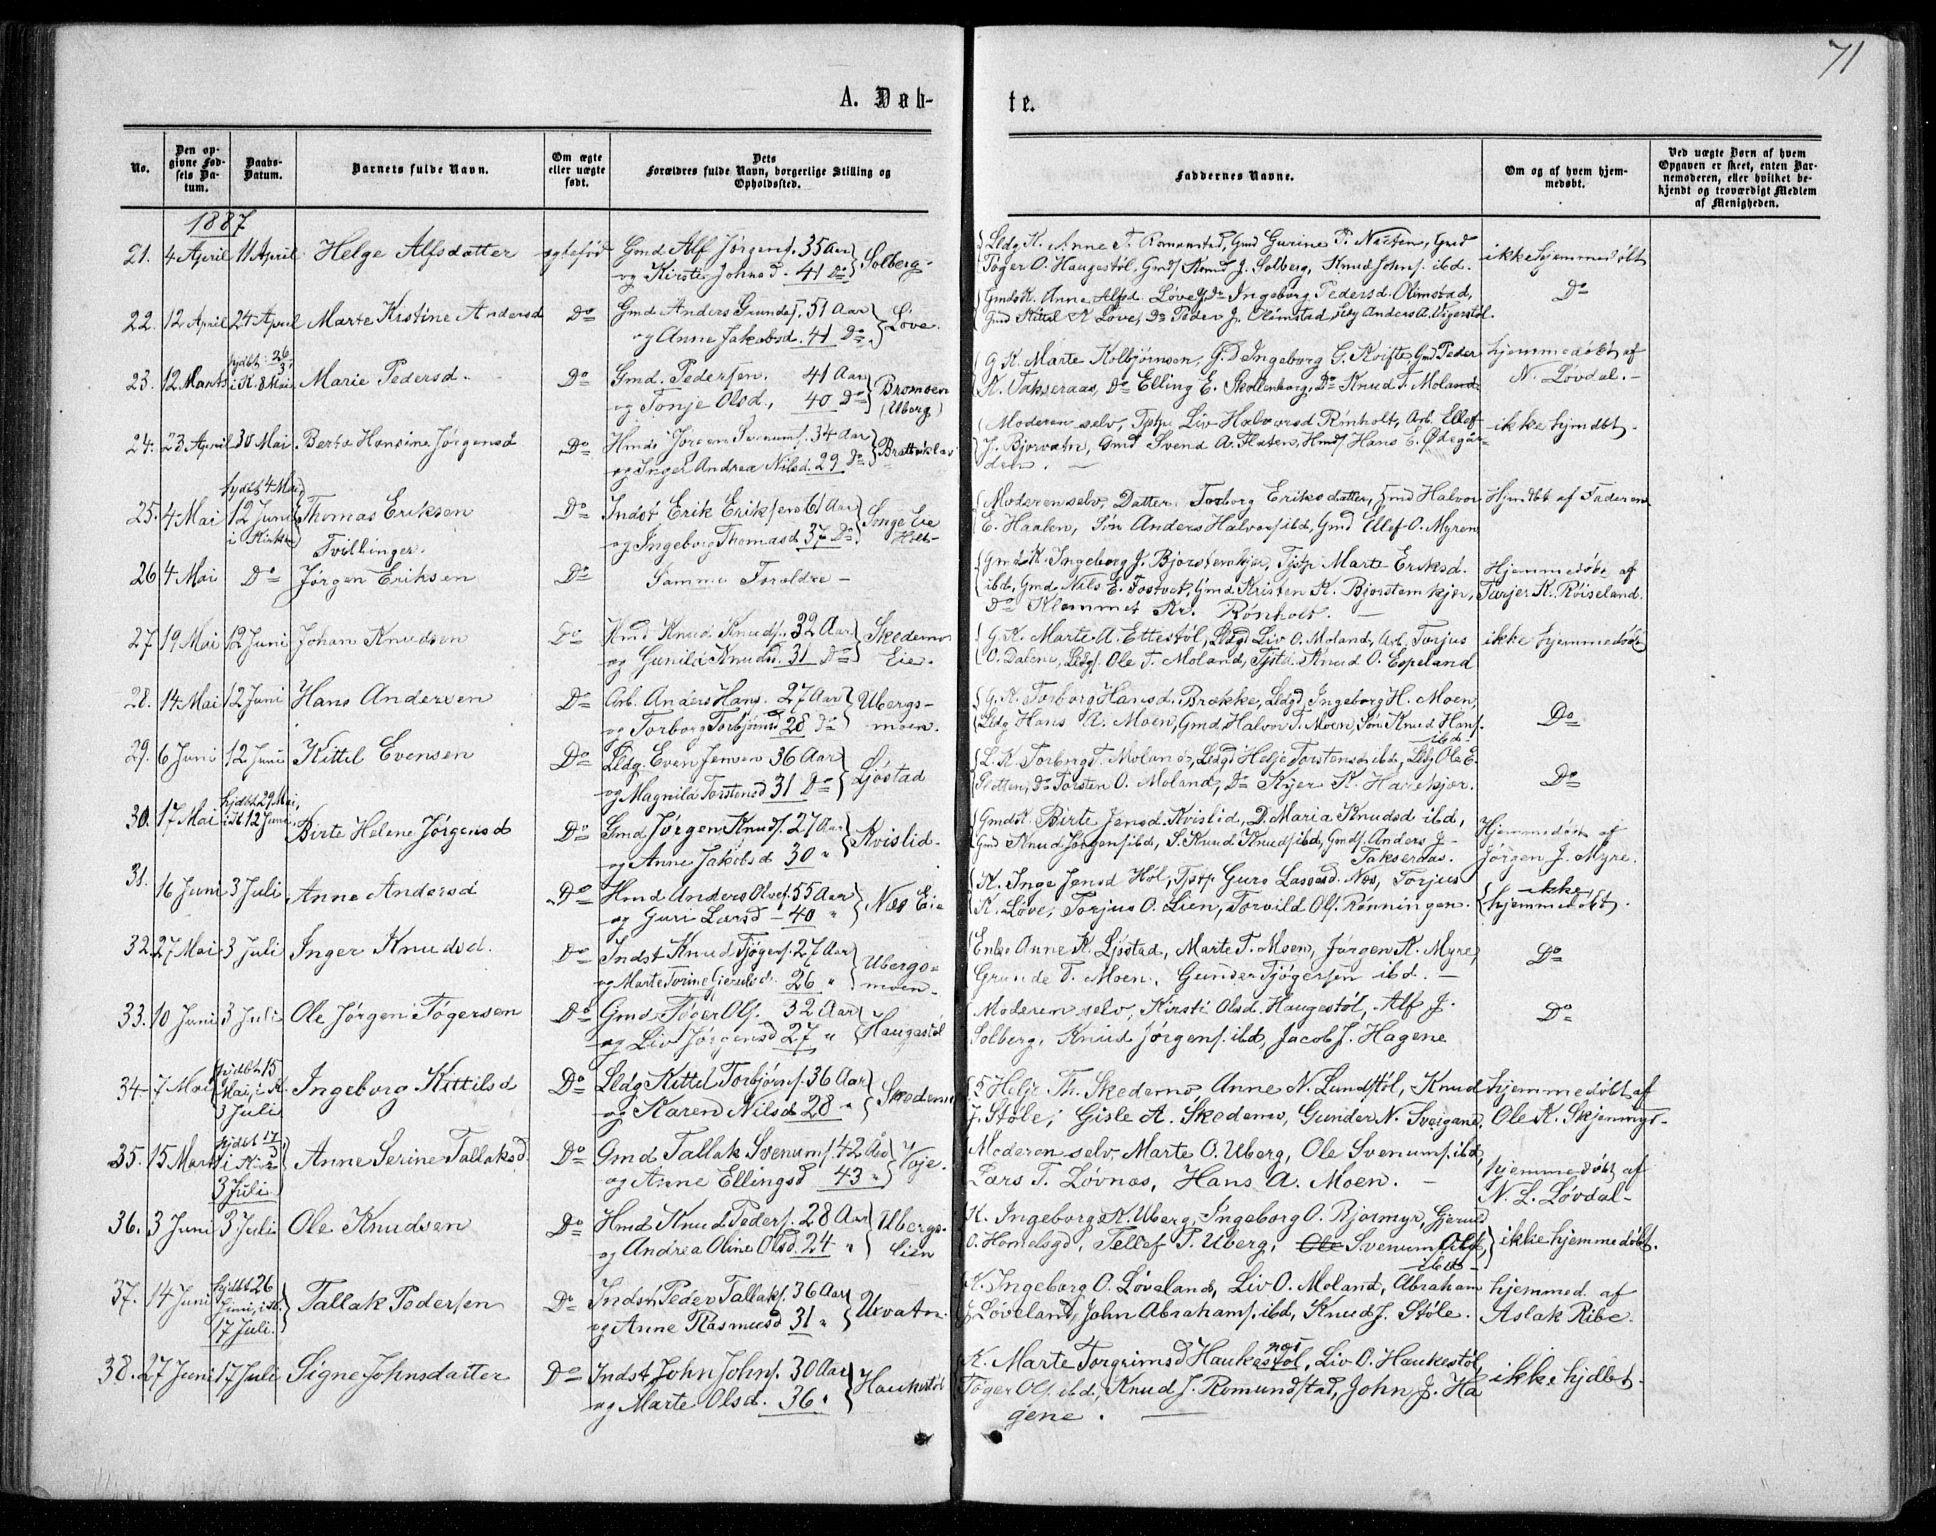 71
A. Døb-
te.
No.
Den op-
givne Fød-
sels Da-
tum.
Daabs-
Datum.
Barnets fulde Navn.
Om ægte
eller uægte
født.
Dets
Forældres fulde Navn, borgerlige Stilling og
Opholdssted.
Faddernes Navne.
Om og af hvem hjem-
medøbt.
Ved uægte Børn af hvem
Opgaven er skeet, enten Bar-
nemoderen, eller hvilket be-
kjendt og troværdigt Medlem
af Menigheden.
1887
21. 4 April 11 April Helge Alfsdatter ægtefød Gmd Alf Jørgens. 35 Aar
og Kirsti Johnsd. 41 Do Solberg.
Tøger O. Haugestøl, Solberg, Knud Johns. ibd. ikke hjemmedøbt
22. 12 April 24 April Marte Kristine Andersd Do Gmd Anders Grundes. 51 Aar
og Anne Jakobsd. 41 Do. Løve.
GmdsK. Anne Alfsd. Løve, Do Ingeborg Pedersd. Olimstad, Do
Gmd Kittel K Løve, Do Peder J. Olimstad, Anders A. Vigerstøl.
23. 12 Marts hjdbt 26/3 i K. 8 Mai Marie Pedersd. Do Gmd. Pedersen. 41 Aar
og Tonje Olsd, 40 Do Bromoen (Uberg)
G. K. Marte Kolbjørnsen, G. D Ingeborg G. Kvifte, Gmd Peder hjemmedøbt af
K. Takseraas, Do Elling E. Skollenborg, Do Knud T. Moland N. Løvdal.-
24. 23 April 30 Mai. Berta Hansine Jørgensd Do Hmd Jørgen Svenums. 34 Aar
og Inger Andrea Nilsd. 29 Do Bratteklas
Moderen selv, Tjstp Liv Halvorsd Rønholt, Arb. Ellef ikke hjmdbt.
J. Bjorvatn, Gmd Svend A. Flaten, Hmds Hans E. Ødegår-
den.
25. 4 Mai hjdbt 4 Mai 12 Juni i Kirken Thomas Eriksen Do Indst Erik Eriksens 61 Aar
og Ingeborg Thomasd 37 Do Songe Eie Holt-
Tvillinger.
Moderen selv, Datter Torborg Eriksdatter, Gmd Halvor Hjmdbt af Faderen
E. Haalen, Søn Anders Halvors. ibd, Gmd Ellef O. Myren
26 4 Mai Do Jørgen Eriksen Do Samme Forældre -
GmdsK. Ingeborg J. Bjorstemkjer, Tjstp Marte Eriksd. Hjemmedøbt af
ibd, Gmd Nils E. Fostvet, Gmd Kristen K. Bjorstemkjer, Tarjer K. Røiseland.
Do Klemmet Kr. Rønholt.
27 19 Mai 12 Juni Johan Knudsen Do Hmd Knud Knuds. 32 Aar
og Gunild Knudsd. 31 Do Skedemo Eie.
G. K. Marte A. Ettestøl, Lldgd Liv O. Moland, Arb. Torjus ikke hjemmedøbt
O. Dalene, Lldgs. Ole T. Moland, Tjstd. Knud O. Espeland
28. 14 Mai 12 Juni Hans Andersen Do Arb. Anders Hans. 27 Aar
og Torborg Torbjørnsd 28 Do Ubergs-
moen.
G. K. Torborg Hansd. Brekke, Lldgd Ingeborg H. Moen, Do
Lldg Hans K. Moen, Gmd Halvor T. Moen, Søn Knud Hans.
ibd.
29. 6 Juni 12 Juni Kittil Evensen Do Lldg. Even Jensen 36 Aar
og Magnild Torstensd 31 Do Ljøstad
L. K. Torborg T. Moland, Lldgd Helje Torstensd ibd, Lldg Ole E. Do
Slotten, Do Torsten O. Moland, Do Kjer K. Harekjør.
30. 17 Mai hjdbt 29 Mai, idt 12 Juni. Birte Helene Jørgensd Do Gmd Jørgen Knuds. 27 Aar
og Anne Jakobsd 30 " Kvislid.
GmdsK Birte Jensd. Kvislid, D. Maria Knudsd ibd, Hjemmedøbt af
Gmd Knud Jørgens. ibd, S. Knud Knuds. ibd, Gmds. Anders J. Jørgen J. Myre.
Takseraas.
31. 16 Juni 3 Juli Anne Andersd Do Hmd Anders Olves. 55 Aar
og Guri Larsd - 40 " Næs Eie
K. Inge Jensd Høl, Tjstp Guro Lassesd. Næs, Torjus ikke
K. Løve, Torjus O. Lien, Torvild Ols. Rønningen. hjemmedøbt.
32. 27 Mai 3 Juli Inger Knudsd. Do Indst Knud Tjøgers. 27 Aar
og Marte Torine Gjeruldsd. 26 " Ubergs-
moen.
Enke Anne K. Ljøstad, Marte T. Moen, Jørgen K. Myre, Do
Grunde T. Moen, Gunder Tjøgersen ibd.
33. 10 Juni 3 Juli Ole Jørgen Tøgersen Do Gmd. Tøger Ols. 32 Aar
og Liv Jørgensd 27 " Haugestøl
Moderen selv, Kirsti Olsd. Haugestøl, Alf J. Do
Solberg, Knud Jørgens. ibd, Jacob J. Hagene
34 7 Mai hjdbt 15 Mai, i K. 3 Juli Ingeborg Kittilsd Do Lldg Kittel Torbjørns. 36 Aar
og Karen Nilsd 28 " Skedemo
Helje Th. Skedemo, Anne N. Lundstøl, Knud hjemmedøbt af
J. Støle, Gisle A. Skedemo, Gunder N. Sveigane, Ole K. Skjenmyr-
35. 15 Mart hjdbt 17 i Kirke 3 Juli. Anne Serine Tallaksd. Do Gmd Tallak Svenums. 42 Aar
og Anne Ellingsd 43 " Voje.
Moderen selv, Marte O. Uberg, Ole Svenums. ibd, hjemmedøbt af
Lars T. Løvnæs, Hans A. Moen. N. L. Løvdal-
36. 3 Juni 3 Juli Ole Knudsen Do Hmd Knud Peders. 28 Aar
og Andrea Oline Olsd. 24 " Ubergs-
lien
K. Ingeborg K. Uberg, Ingeborg O. Bjormyr, Gjeruld
O. Homelsgd, Tellef T. Uberg, Ole Svenum Ols. ikke hjemmedøbt.
ibd-
37. 14 Juni hjdbt 26 Juni, idt. 17 Juli. Tallak Pedersen Do Indst Peder Tallaks. 36 Aar
og Anne Rasmusd 31 " Urvatn.
K. Ingeborg O. Løveland, Liv O. Moland, Abraham hjemmed af
J. Løveland, John Abrahams. ibd, Knud J. Støle. Aslak Ribe.
38. 27 Juni 17 Juli Signe Johnsdatter Do Indst John Johns. 30 Aar
og Marte Olsd. 36 " Haukestøl
K. Marte Torgrimsd Haukenes, Liv O. Haukestøl, ikke hjdbt.
Tøger Ols. ibd, Knud J. Romundstad, John J. Ha
gene.